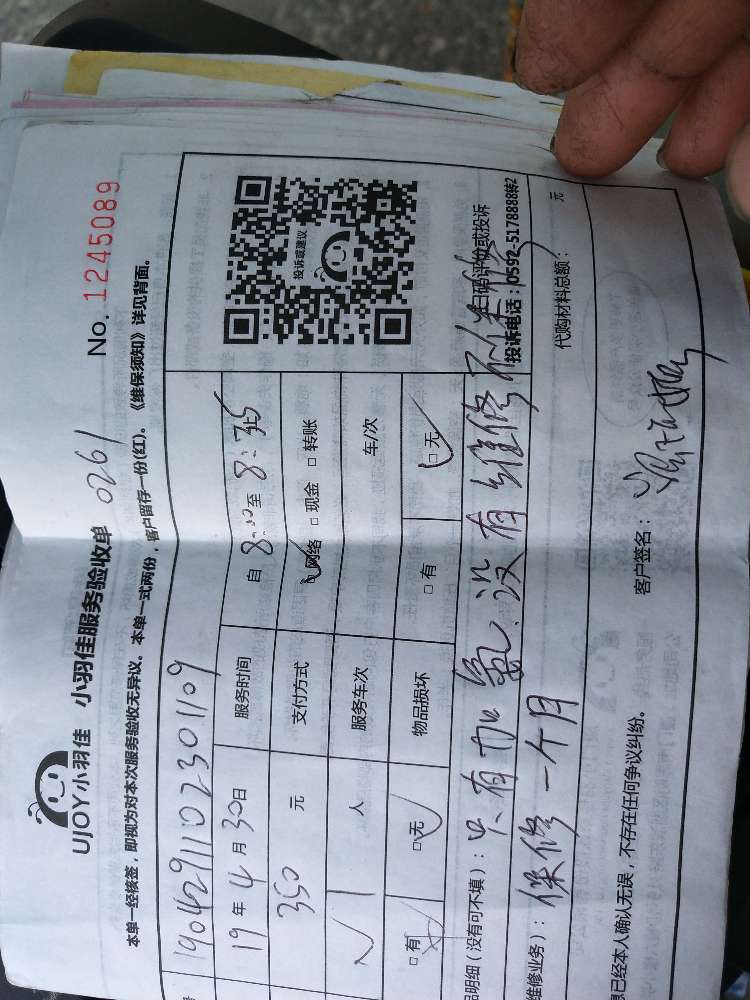 UJOY小羽佳 小羽佳服务验收单 0261 No. 1245089
本单一经核签，即视为对本次服务验收无异议。本单一式两份，客户留存一份(红)。《维保须知》详见背面。
1904291102301109
19年4月30日 服务时间 自 8:00 至 8:35
350 元 支付方式 ☑网络 □现金 □转账
人 服务车次 车/次
□有 □无 物品损坏 □有 □无
投诉或建议
扫码评价或投诉
投诉电话：0592-5178888转2
品明细（没有可不填）：只有加氨没有维修不保修
代购材料总额： 元
维修业务）：保修一个月
息已经本人确认无误，不存在任何争议纠纷。
客户签名：